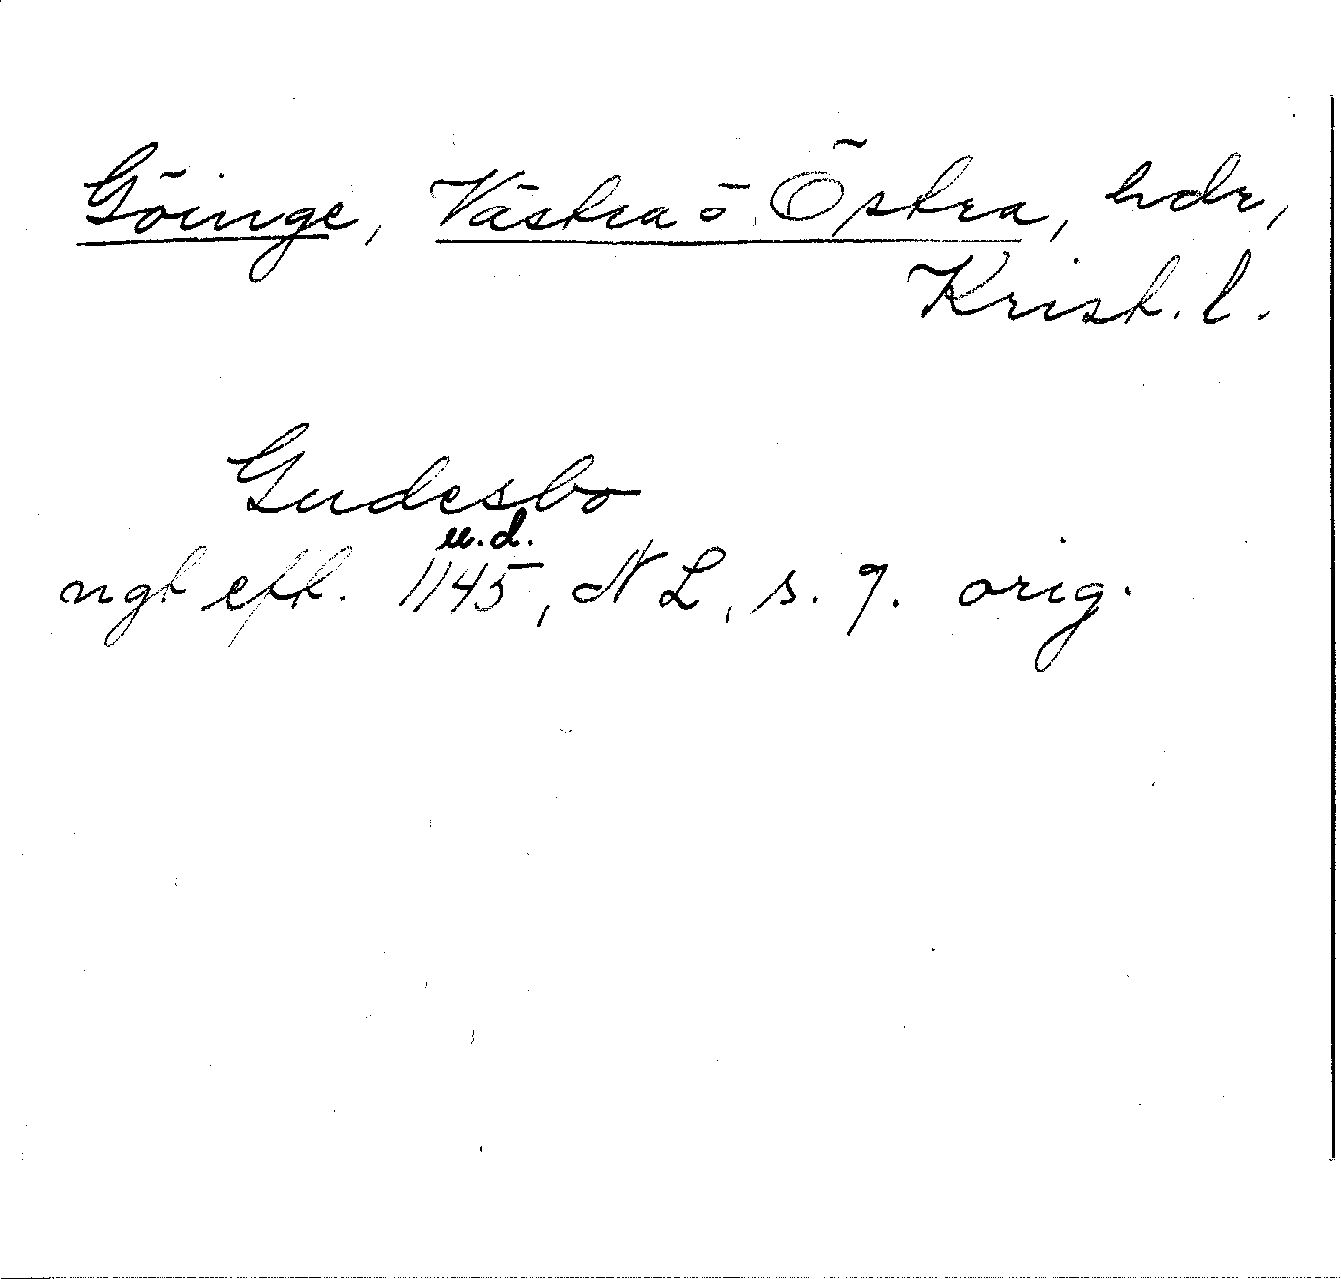 Göinge, Västra o Östra, hdr,
Krist. l.
Gudesbo
u.d.
ngt eft. 1145, N L, s. 9. orig.